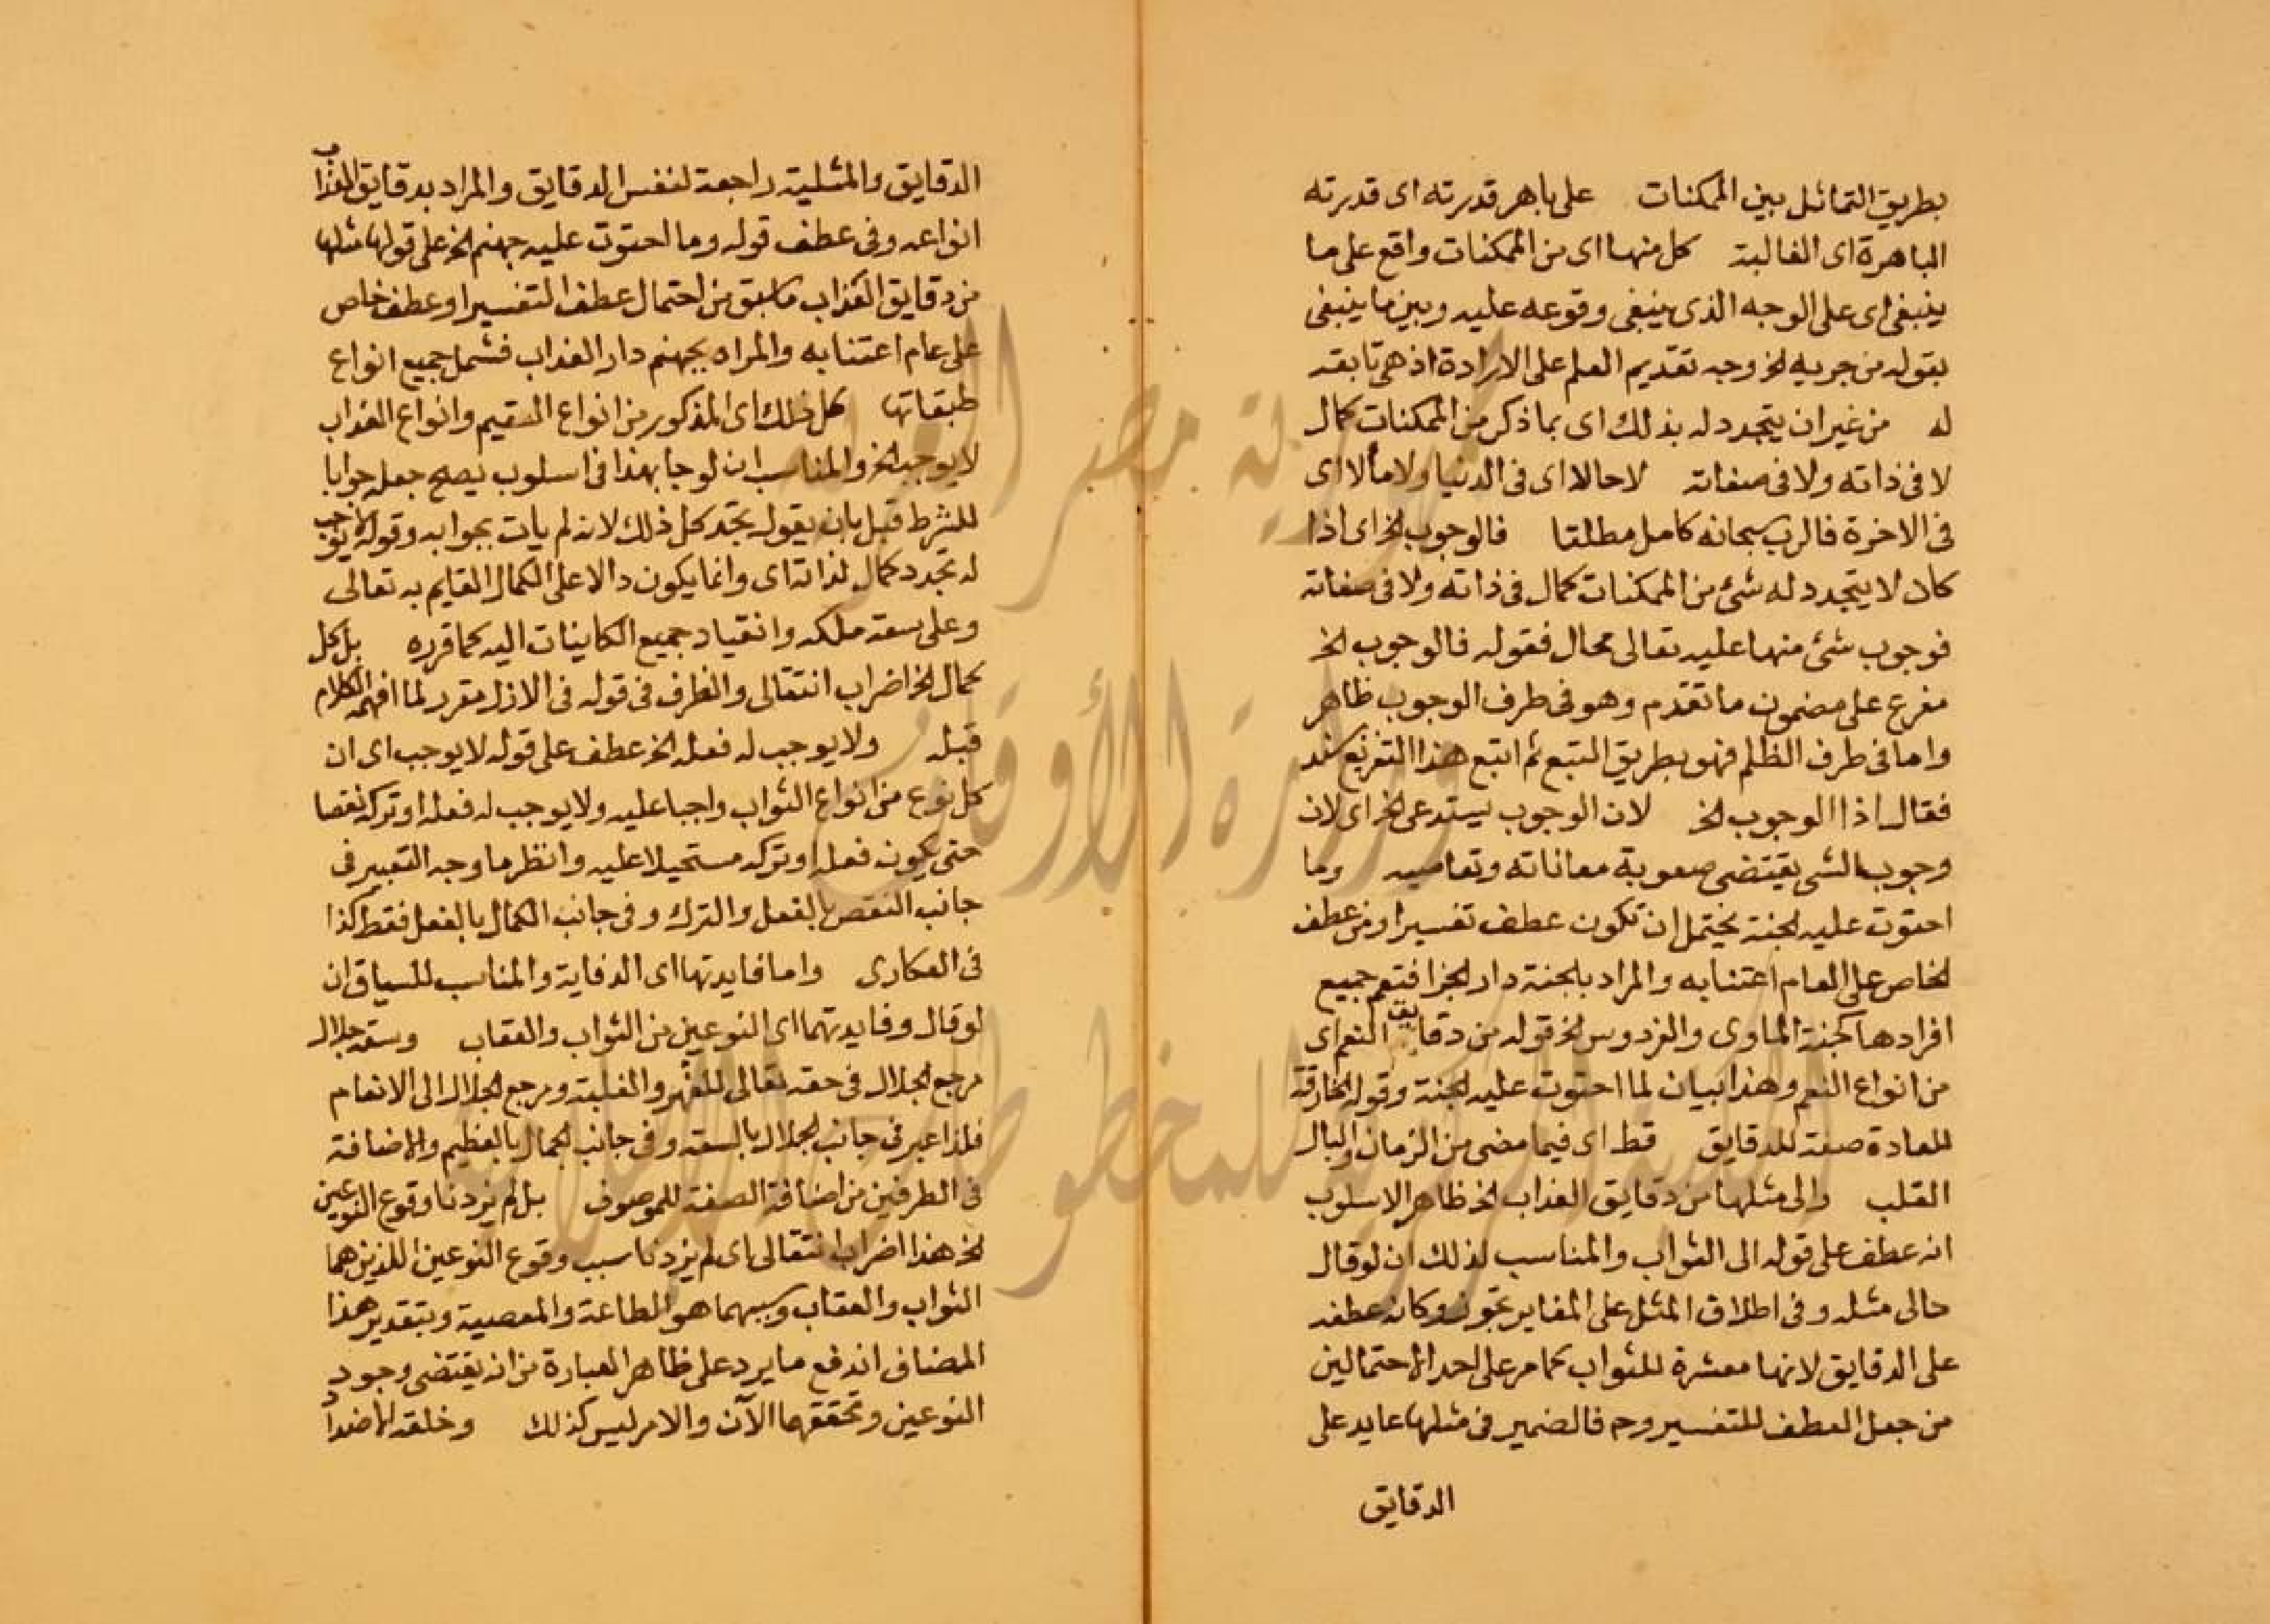 بطريق التماثل بين الممكنات على باهر قدرته اى قدرته
الباهرة اى الغالبة كل منها اى من الممكنات واقع على ما
ينبغى اى على الوجه الذى ينبغى وقوعه عليه وبين ما ينبغى
بقوله من جريه الخ وجه تقديم العلم على الارادة اذ هى تابعة
له من غير ان يتجدد له بذلك اى بما ذكر من الممكنات كمال
لا فى ذاته ولا فى صفاته لا حالا اى فى الدنيا ولا مألا اى
فى الاخرة فالرب سبحانه كامل مطلقا فالوجوب الخ اى اذا
كان لا يتجدد له شئ من الممكنات كمال فى ذاته ولا فى صفاته
فوجوب شئ منها عليه تعالى محال فقوله فالوجوب الخ
مفرع على مضمون ما تقدم وهو فى طرف الوجوب ظاهر
واما فى طرف الظلم فهو بطريق التبع ثم اتبع هذا التفريع سند
فقال اذا الوجوب الخ لان الوجوب يستدعى الخ اى لان
وجوب الشى يقتضى صعوبة معاناته وتعاصيه وما
احتوت عليه الجنة يحتمل ان تكون عطف تفسير او من عطف
الخاص على العام اعتنا به والمراد بالجنة دار الجزا فتعم جميع
افرادها كجنة الماوى والفردوس الخ قوله من دقايق النعم اى
من انواع النعم وهذا بيان لما احتوت عليه الجنة وقوله الخارقة
للعادة صفة للدقايق قط اى فيما مضى من الزمان والبال
القلب والى مثلها من دقايق العذاب الخ ظاهر الاسلوب
انه عطف على قوله الى الثواب والمناسب لذلك ان لو قال
حالى مثله وفى اطلاق المثل على المغاير تجوز وكانه عطفه
على الدقايق لانها مفسرة للثواب كما مر على احد الاحتمالين
من جعل العطف للتفسير وح فالضمير فى مثلها عايد على
الدقايق
الدقايق والمثلية راجعة لنفس الدقايق والمراد بدقايق العذاب
انواعه وفى عطف قوله وما احتوت عليه جهنم الخ على قولها مثلها
من دقايق العذاب ما سبق من احتمال عطف التفسير او عطف خاص
على عام اعتنا به والمراد بجهنم دار العذاب فشمل جميع انواع
طبقاتها كل ذلك اى المذكور من انواع النعيم وانواع العذاب
لا يوجب الخ والمناسب ان لو جا بهذا فى اسلوب يصلح جعله جوابا
للشرط قبل بان يقول تجد كل ذلك لانه لم يات بجوابه وقوله لا يوجب
له تجدد كمال لذاته اى وانما يكون دالا على الكمال القايم به تعالى
وعلى سعة ملكه وانقياد جميع الكاينات اليه كما قرره بل كل
كمال الخ اضراب انتقالى والظرف فى قوله فى الازل مقرر لما افهمه الكلام
قبله ولا يوجب له فعله الخ عطف على قوله لا يوجب اى ان
كل نوع من انواع الثواب واجبا عليه ولا يوجب له فعله او تركه نقصا
حتى يكون فعله او تركه مستحيلا عليه وانظر ما وجه التعبير فى
جانب النقص بالفعل والترك وفى جانب الكمال بالفعل فقط كذا
فى العكارى واما فايدتها اى الدفاية والمناسب للسياق ان
لو قال وفايدتهما اى النوعين من الثواب والعقاب وسعة جلال
مرجع الجلال فى حقه تعالى للقهر والغلبة ومرجع الجلال الى الانعام
فلذا عبر فى جانب الجلال بالسعة وفى جانب الجمال بالعظيم والاضافة
فى الطرفين من اضافة الصفة للموصوف بل لم يزدنا وقوع النوعين
الخ هذا اضراب انتقالى اى لم يزدنا سبب وقوع النوعين اللذين هما
الثواب والعقاب وسببهما هو الطاعة والمعصية وبتقدير هذا
المضاف اندفع ما يرد على ظاهر العبارة من انه يقتضى وجود
النوعين وتحققهما الآن والامر ليس كذلك وخلقه الاضداد